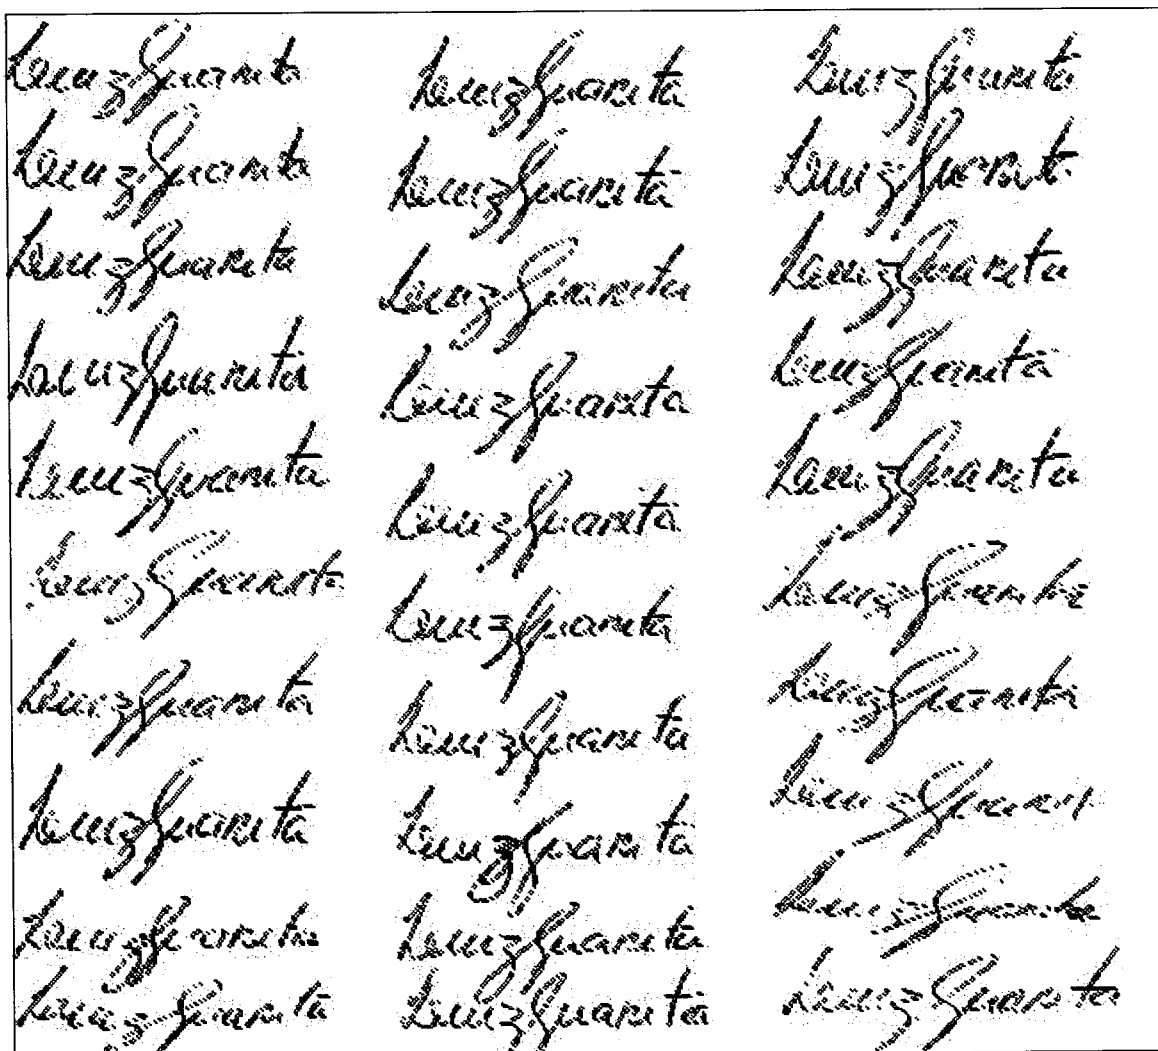 Lainz Guarita Lainz Guarita Lainz Guarita
Lainz Guarita Lainz Guarita Lainz Guarita
Lainz Guarita Lainz Guarita Lainz Guarita
Lainz Guarita Lainz Guarita Lainz Guarita
Lainz Guarita Lainz Guarita Lainz Guarita
Lainz Guarita Lainz Guarita Lainz Guarita
Lainz Guarita Lainz Guarita Lainz Guarita
Lainz Guarita Lainz Guarita Lainz
Lainz Guarita Lainz Guarita Lainz Guarita
Lainz Guarita Lainz Guarita Lainz Guarita